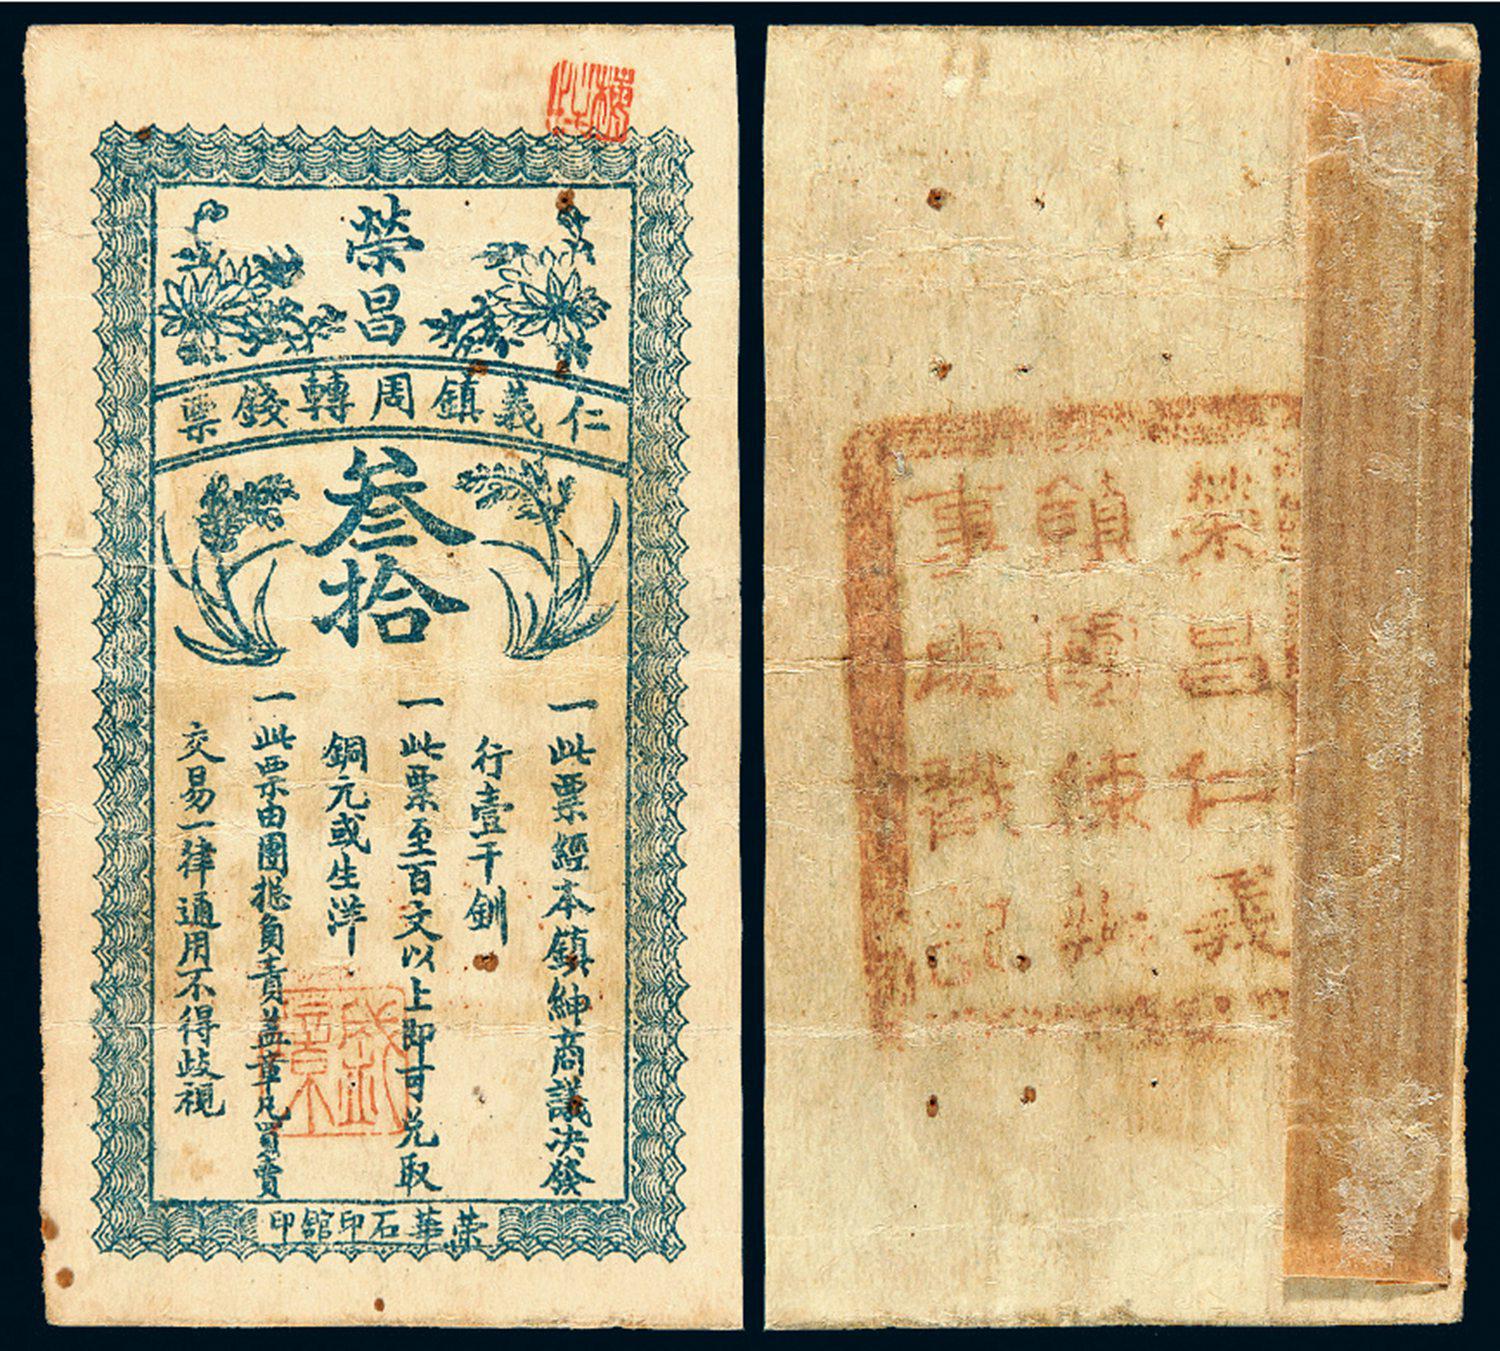 榮昌
仁義鎮周轉錢票
叁拾
一此票經本鎮紳商議决發
行壹千釧
一此票至百文以上即可兑取
銅元或生洋
一此票由團总負責盖章凡買賣
交易一律通用不得歧視
榮華石印舘印
榮昌仁義
鎮團練辦
事處戳記